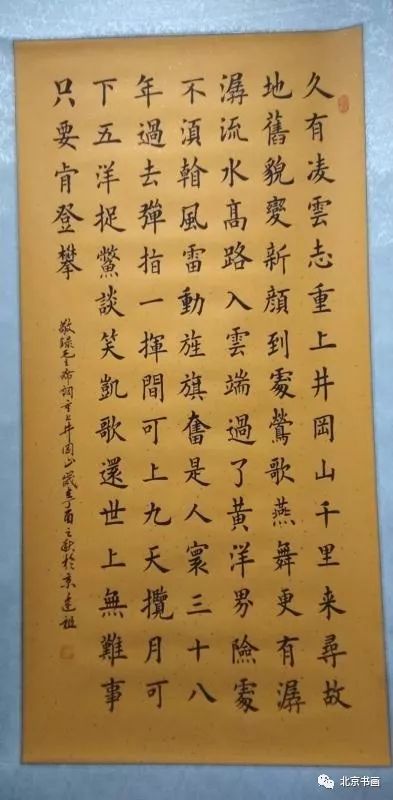 久有凌雲志重上井岡山千里来尋故
地舊貌變新顔到處鶯歌燕舞更有潺
潺流水高路入雲端過了黃洋界險處
不須看風雷動旌旗奮是人寰三十八
年過去彈指一揮間可上九天攬月可
下五洋捉鱉談笑凱歌還世上無難事
只要肯登攀
敬錄毛主席詞重上井岡山歲在丁酉之秋於京建祖
北京书画